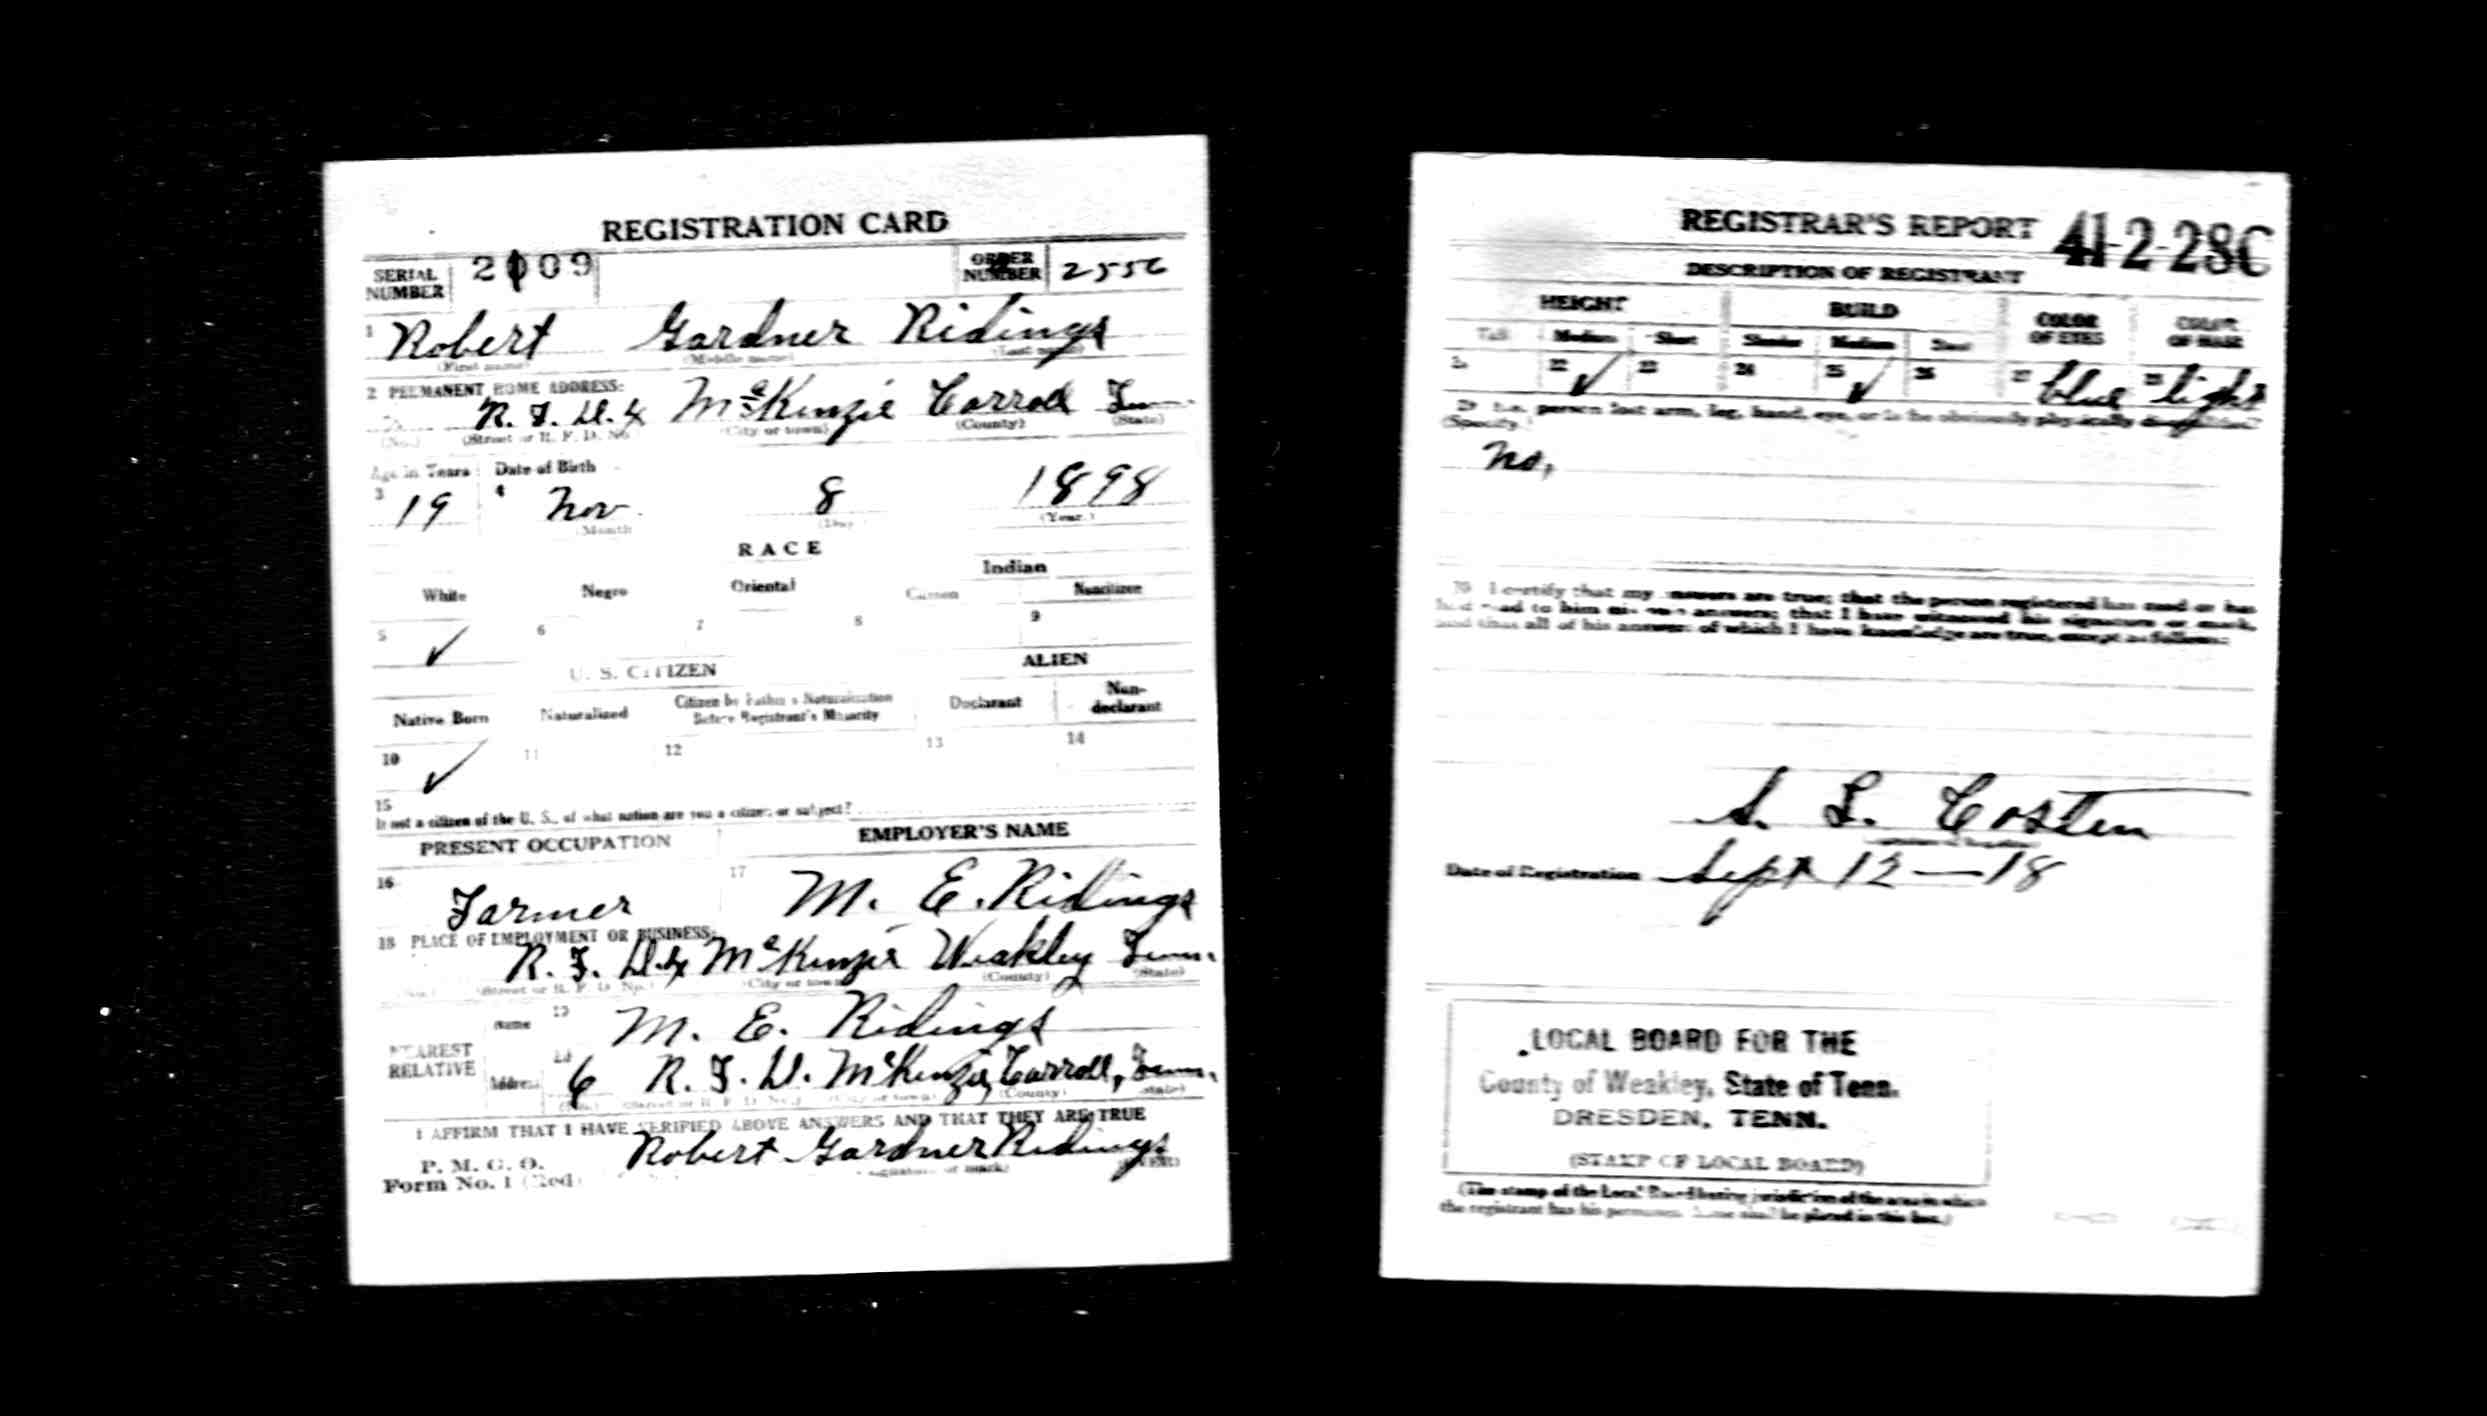 REGISTRATION CARD
SERIAL NUMBER 2109 ORDER NUMBER 2556
1 Robert Gardner Ridings
(First name) (Middle name) (Last name)
2 PERMANENT HOME ADDRESS:
R. F. D. McKenzie Carroll Tenn.
(No.) (Street or R. F. D. No.) (City or town) (County) (State)
Age in Years Date of Birth
3 19 4 Nov 8 1898
(Month) (Day) (Year)
RACE
Indian
White Negro Oriental Citizen Noncitizen
5 ✓ 6 7 8 9
U. S. CITIZEN ALIEN
Native Born Naturalized Citizen by Father's Naturalization Before Registrant's Majority Declarant Non-declarant
10 ✓ 11 12 13 14
15
If not a citizen of the U. S., of what nation are you a citizen or subject?
PRESENT OCCUPATION EMPLOYER'S NAME
16 Farmer 17 M. E. Ridings
18 PLACE OF EMPLOYMENT OR BUSINESS:
R. F. D. McKenzie Weakley Tenn.
(No.) (Street or R. F. D. No.) (City or town) (County) (State)
NEAREST RELATIVE
Name 19 M. E. Ridings
Address 20 6 R. F. D. McKenzie, Carroll, Tenn.
(No.) (Street or R. F. D. No.) (City or town) (County) (State)
I AFFIRM THAT I HAVE VERIFIED ABOVE ANSWERS AND THAT THEY ARE TRUE
P. M. G. O.
Form No. 1 (Red) Robert Gardner Ridings
(Signature or mark) (OVER)
REGISTRAR'S REPORT 41-2-28C
DESCRIPTION OF REGISTRANT
HEIGHT BUILD COLOR OF EYES COLOR OF HAIR
Tall Medium Short Slender Medium Stout
21 22 ✓ 23 24 25 ✓ 26 27 blue 28 light
29 Has person lost arm, leg, hand, eye, or is he obviously physically disqualified?
(Specify.)
No,
30 I certify that my answers are true; that the person registered has read or has
had read to him his own answers; that I have witnessed his signature or mark,
and that all of his answers of which I have knowledge are true, except as follows:
S. L. Costen
(Signature of Registrar)
Date of Registration Sept 12—18
LOCAL BOARD FOR THE
County of Weakley, State of Tenn.
DRESDEN, TENN.
(STAMP OF LOCAL BOARD)
(The stamp of the Local Board having jurisdiction of the area in which
the registrant has his permanent home shall be placed in this box.)